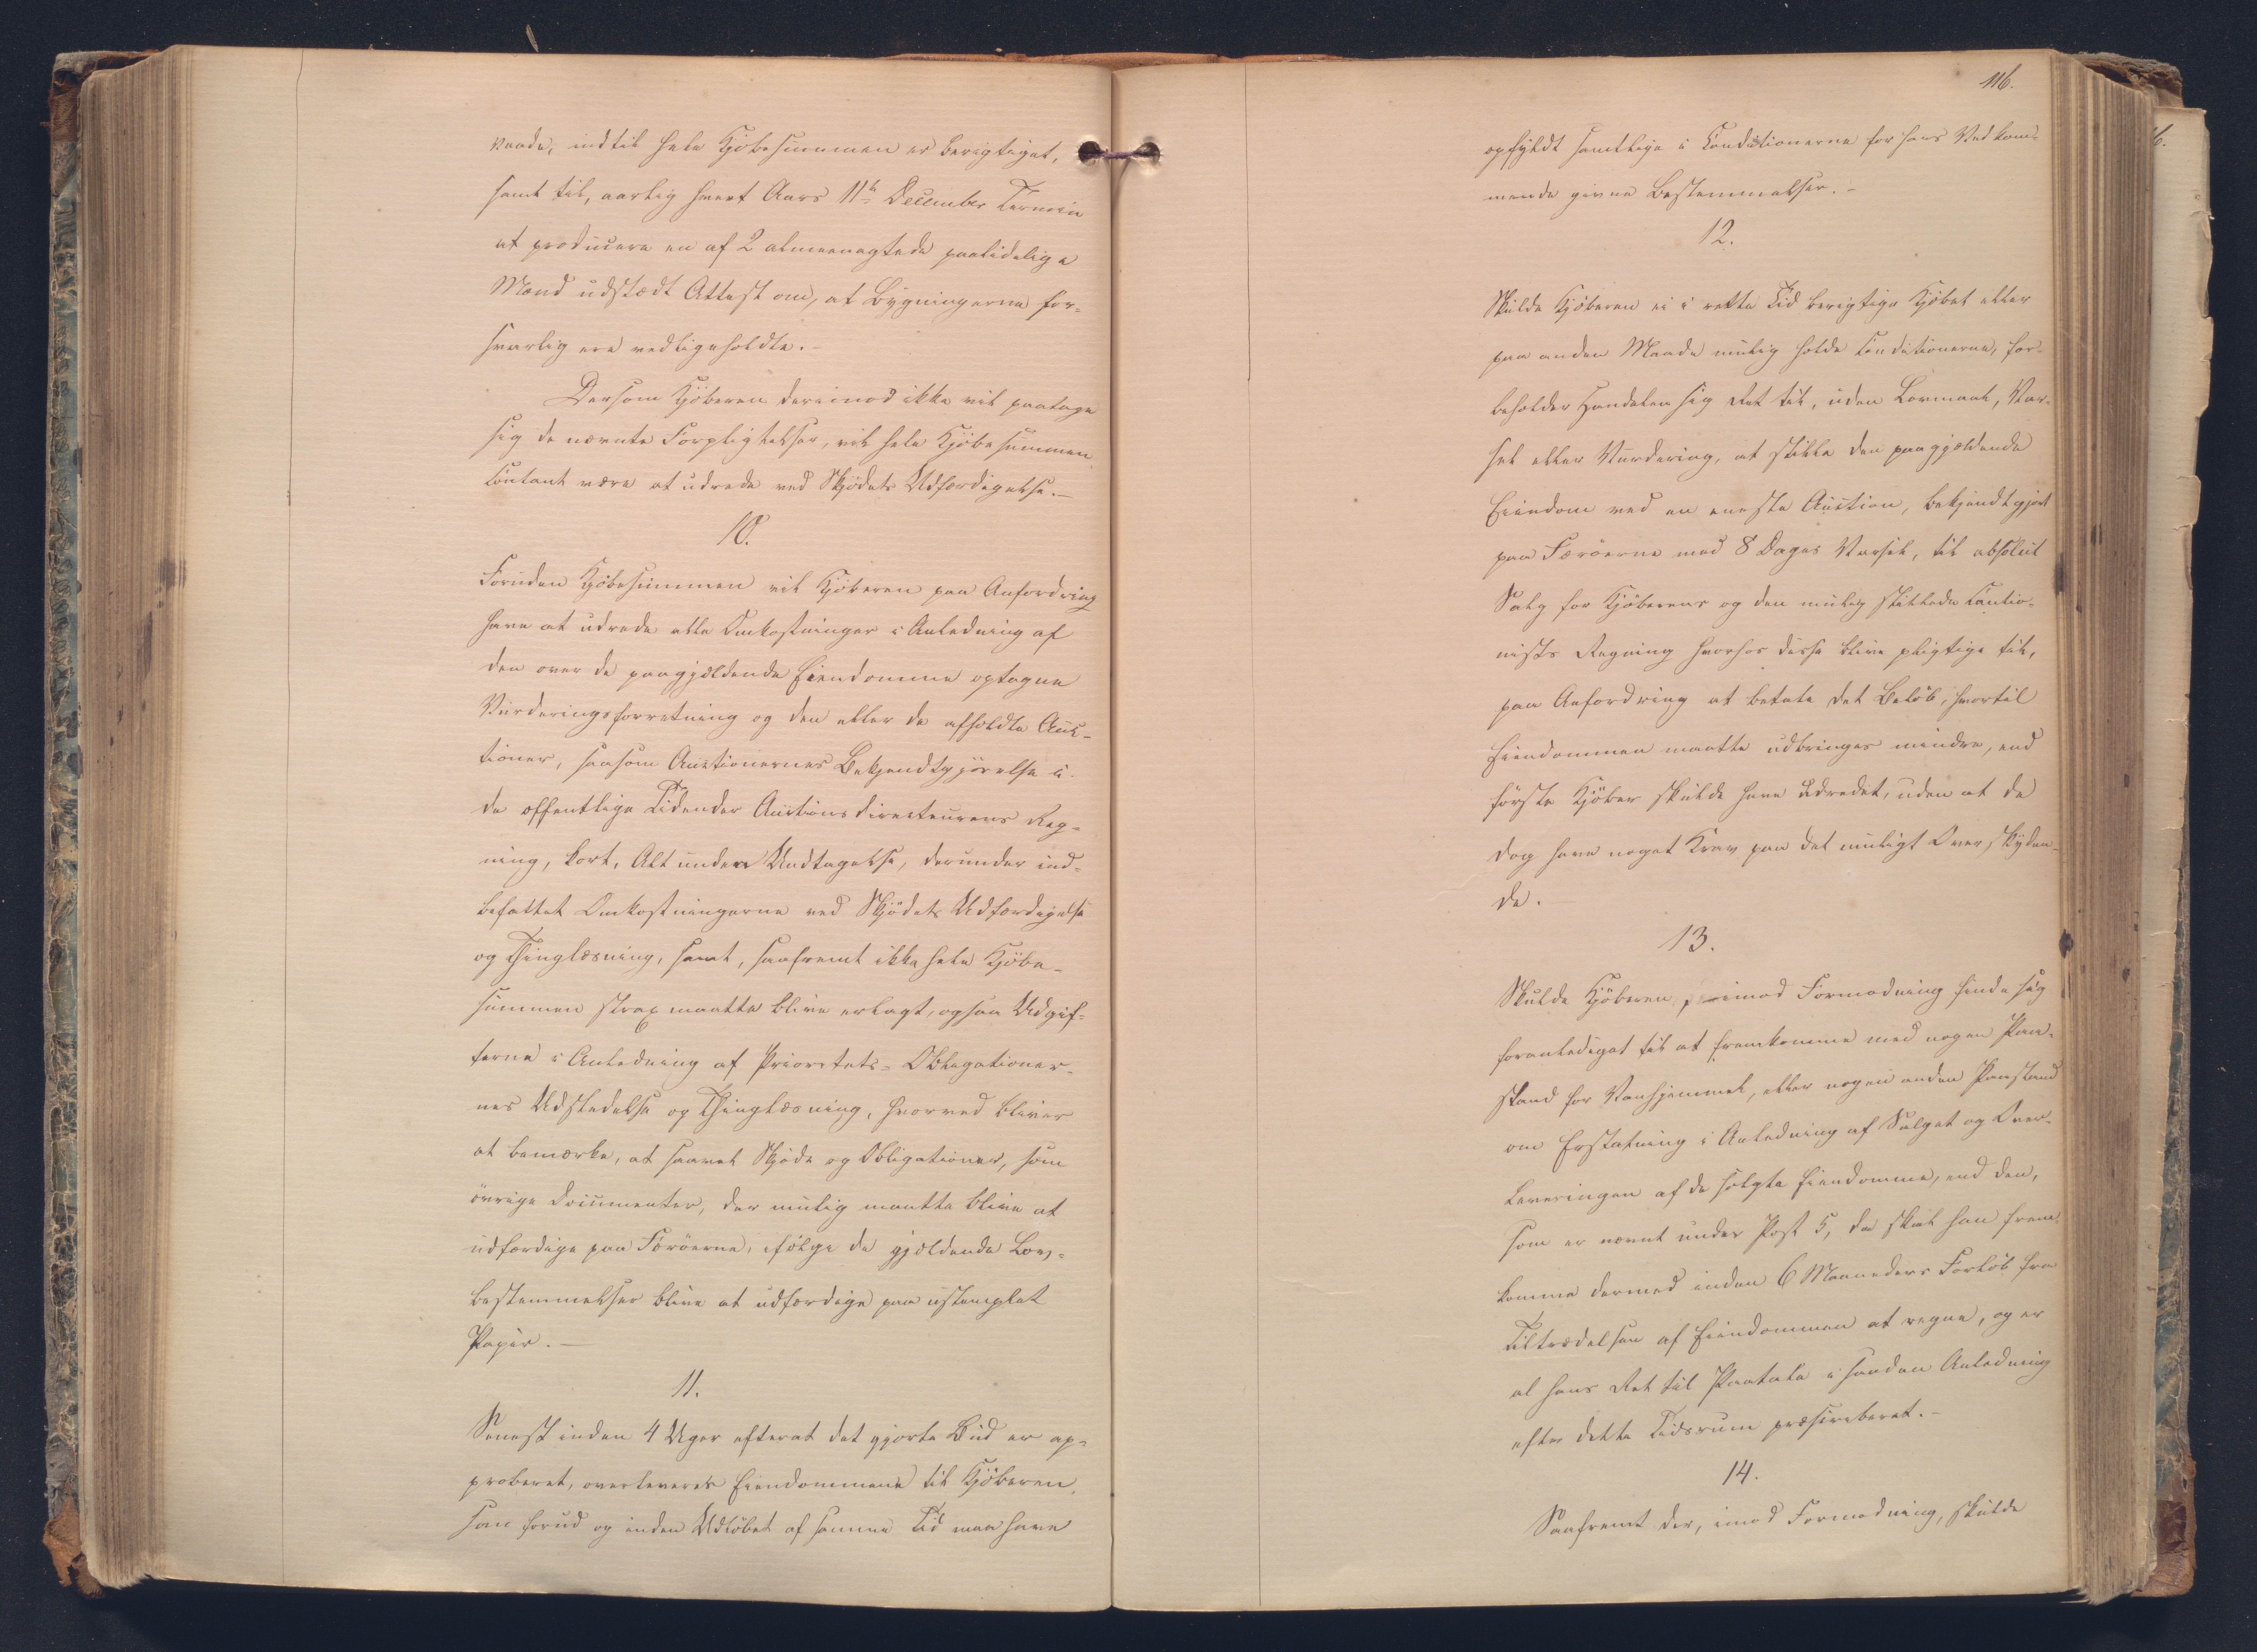 vaade, indtil hele Kjöbesummen er berigtiget,
samt til, aarlig hvert Aars 11te December Termin
at producere en af 2 almeenagtede paalidelige
Mænd udstædt Attest om, at Bygningerne for-
svarlig ere vedligeholdte. -
Dersom Kjöberen derimod ikke vil paatage
sig de nævnte Forpligtelser, vil hele Kjöbesummen
contant være at udrede ved Skjödets Udfærdigelse. -
10.
Foruden Kjöbesummen vil Kjöberen paa Anfordring
have at udrede alle Omkostninger i Anledning af
den over de paagjældende Eiendomme optagne
Vurderingsforretning og den eller de afholdte Auc-
tioner, saasom Auctionernes Bekjendtgjörelse i
de offentlige Tidender Auctionsdirecteurens Reg-
ning, kort, Alt uden Undtagelse, derunder ind-
befattet Omkostningerne ved Skjödets Udfærdigelse
og Thinglæsning, samt, saafremt ikke hele Kjöbe-
summen strax maatte blive erlagt, ogsaa Udgif-
terne i Anledning af Prioritets-Obligationer-
nes Udstedelse og Thinglæsning, hvorved bliver
at bemærke, at saavel Skjöde og Obligationer, som
övrige Documenter, der mulig maatte blive at
udfærdige paa Færöerne, ifölge de gjældende Lov-
bestemmelser blive at udfærdige paa ustemplet
Papir. -
11.
Senest inden 4 Uger efterat det gjorte Bud er ap-
proberet, overleveres Eiendommene til Kjöberen,
som forud og inden Udlöbet af samme Tid maa have
116.
opfyldt samtlige i Conditionerne for hans Vedkom-
mende givne Bestemmelser. -
12.
Skulde Kjöberen ei i rette Tid berigtige Kjöbet eller
paa anden Maade mulig holde Conditionerne, for-
beholder Handelen sig Ret til, uden Lovmaal, Var-
sel eller Vurdering, at stille den paagjældende
Eiendom ved en eneste Auction, bekjendtgjort
paa Færöerne med 8 Dages Varsel, til absolut
Salg for Kjöberens og den mulig stillede Cautio-
nists Regning hvorhos disse blive pligtige til,
paa Anfordring at betale det Belöb, hvortil
Eiendommen maatte udbringes mindre, end
förste Kjöber skulde have udredet, uden at de
dog have noget Krav paa det muligt Overskyden-
de.
13.
Skulde Kjöberen, imod Formodning finde sig
foranlediget til at fremkomme med nogen Paa-
stand for Vanhjemmel, eller nogen anden Paastand
om Erstatning i Anledning af Salget og Over-
leveringen af de solgte Eiendomme, end den,
som er nævnt under Post 5, da skal han frem-
komme dermed inden 6 Maaneders Forlöb fra
Tiltrædelsen af Eiendommen at regne, og er
al hans Ret til Paatale i saadan Anledning
efter dette Tidsrum præscriberet. -
14.
Saafremt der, imod Formodning, skulde